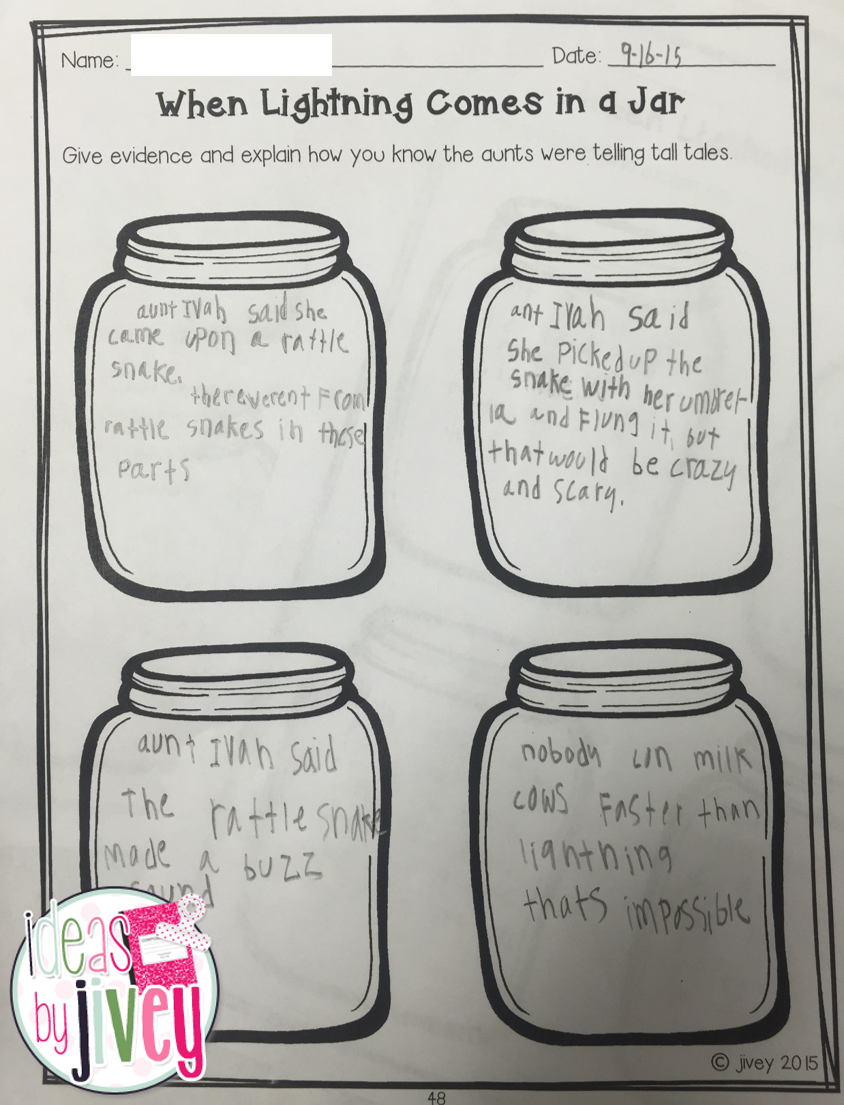 Name:
Date: 9-16-15
When Lightning Comes in a Jar
Give evidence and explain how you know the aunts were telling tall tales.
aunt IVah said she
came upon a rattle
snake.
therewerent From
rattle snakes in these
parts
ant IVah said
She Pickedup the
snake with her umbrel-
la and Flung it, but
thatwould be crazy
and scary.
aunt IVah said
The rattle snake
made a buzz
sound
nobody can milk
cows Faster than
lightning
thats impossible
ideas
by jivey
© jivey 2015
48